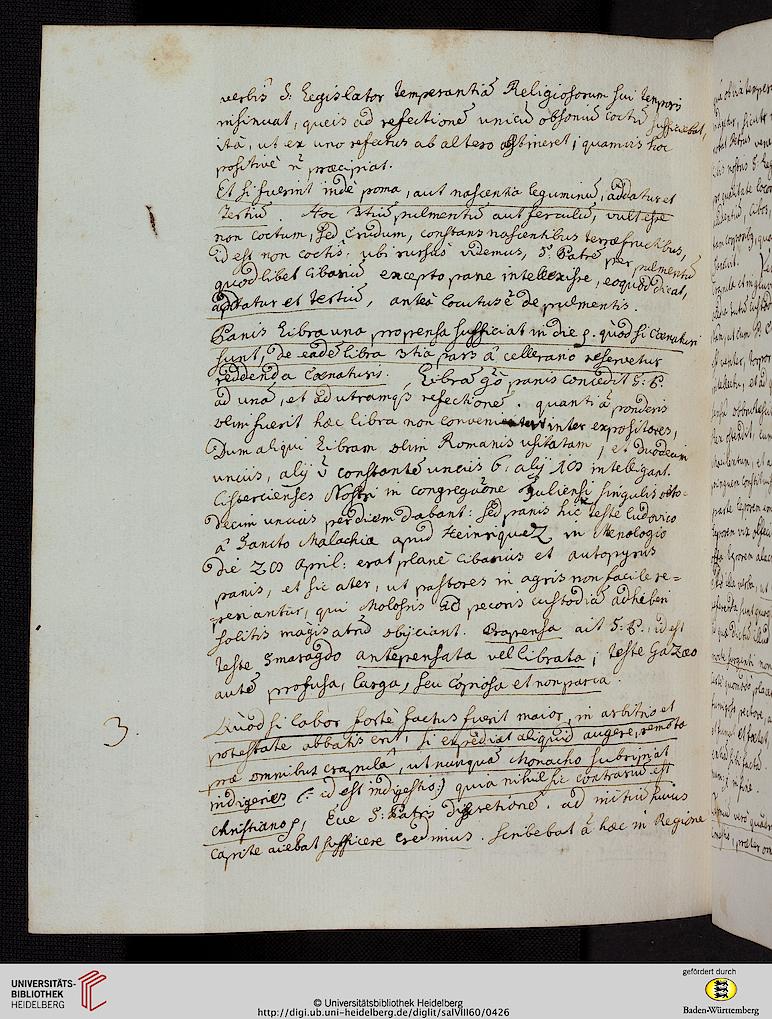 verbis S: Legislator temperantiã Religiosorum sui temporis
insinuat, queis ad refectionẽ unicũ obsoniũ coctũ sufficiebat,
ità, ut ex uno refectus ab altero abstineret; quamvis hoc
positivè ñ præcipiat.
Et si fuerint indè poma, aut nascentia leguminũ, addatur et
tertiũ. Hoc 3tiũ pulmentũ aut ferculũ, vult esse
non coctum, sed crudum, constans nascentibus terræ fructibus,
id est non coctis: ubi rursus videmus, S: Patrẽ per pulmentũ
quodlibet cibariũ excepto pane intellexisse, eo quod dicat,
addatur et tertiũ, anteà locutus ẽ de pulmentis.
Panis libra una propensa sufficiat in die p. quòd si cœnaturi
sunt, de eadẽ libra 3tia pars â cellerario reservetur
reddenda cœnaturis. Librã g̃o panis concedit S. P.
ad unã, et ad utramq3 refectionẽ. quanti ã ponderis
olim fuerit hæc libra non convenit inter expositores,
Dum aliqui Libram olim Romanis usitatam, et duodecim
unciis, alij ṽ constantẽ unciis 6. alij 18 intelligant.
Cistercienses Nostri in congregãone Juliensi singulis octo-
decim uncias per diem dabant: sed panis hic teste Ludovico
â Sancto Malachia apud Heinriquez in Menologio
die 28 April: erat planè cibarius et autopyrus
panis, et sic ater, ut pastores in agris non facile re=
periantur, qui Molossis ad pecoris custodiã adhiberi
solitis magis atrũ obijciant. Propensa ait S. P. id est
teste Smaragdo antepensata vel librata; teste Gazæo
autẽ profusa, larga, seu copiosa et non parca.
3. Quòd si labor fortè factus fuerit maior, in arbitrio et
potestate abbatis erit, si expediat aliquid augere, remota
præ omnibus crapula, ut nunquã Monacho subripiat
indigeries (: id est indigestio:) quia nihil sic contrariũ est
christiano p, Eve S: Patris discretionẽ. ad initiũ huius
capite aiebat sufficere credimus. scribebat ã hæc in Regione
UNIVERSITÄTS-
BIBLIOTHEK
HEIDELBERG
© Universitätsbibliothek Heidelberg
http://digi.ub.uni-heidelberg.de/diglit/salVIII60/0426
gefördert durch
Baden-Württemberg